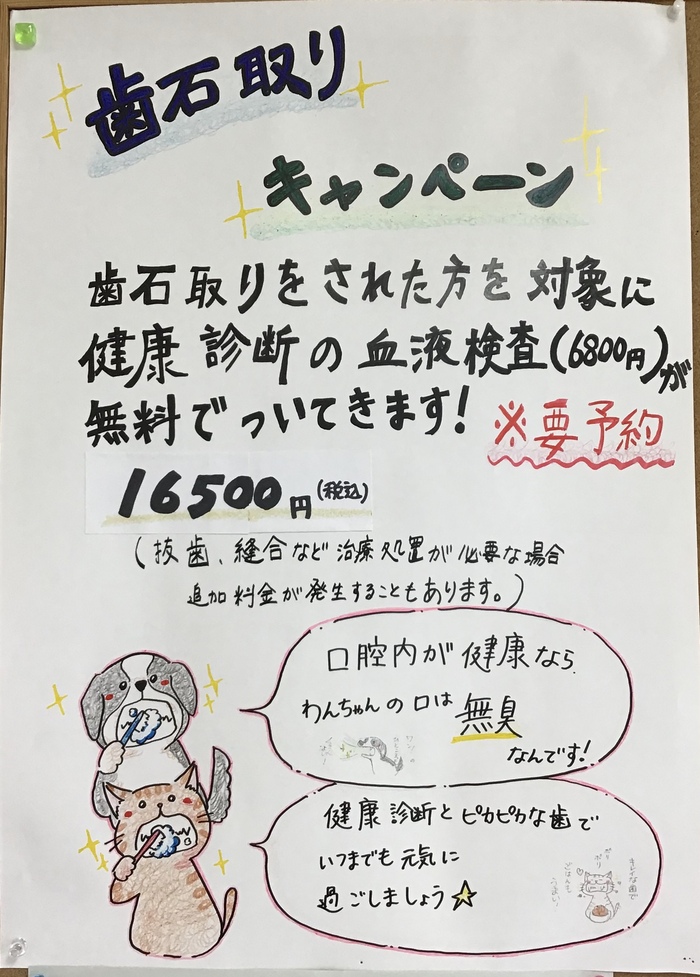 歯石取り
キャンペーン
歯石取りをされた方を対象に
健康診断の血液検査(6800円)が
無料でついてきます!
※要予約
16500円(税込)
(抜歯、縫合など治療処置が必要な場合
追加料金が発生することもあります。)
口腔内が健康なら
わんちゃんの口は無臭
なんです!
健康診断とピカピカな歯で
いつまでも元気に
過ごしましょう☆
キレイな歯で
ポリ
ポリ
ごはんも
うまい!